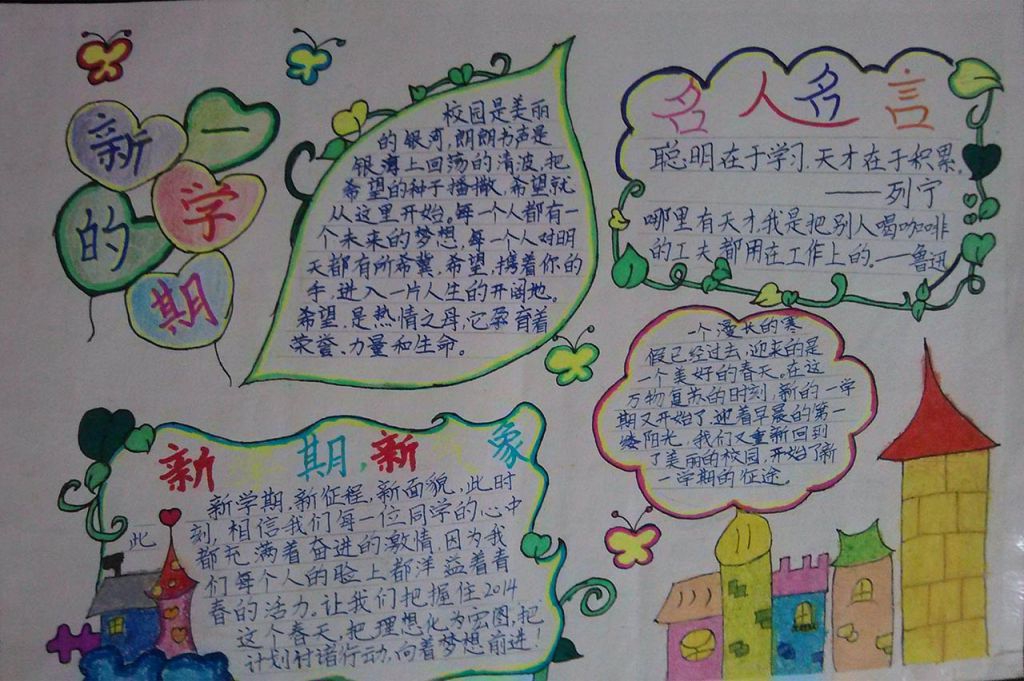 新
一
的
学
期
校园是美丽
的银河,朗朗书声是
银海上回荡的清波,把
希望的种子播撒,希望就
从这里开始。每一个人都有一
个未来的梦想,每一个人对明
天都有所希冀,希望,携着你的
手,进入一片人生的开阔地。
希望,是热情之母,它孕育着
荣誉、力量和生命。
名人名言
聪明在于学习,天才在于积累。
——列宁
哪里有天才,我是把别人喝咖啡
的工夫都用在工作上的。——鲁迅
一个漫长的寒
假已经过去,迎来的是
一个美好的春天。在这
万物复苏的时刻,新的一学
期又开始了,迎着早晨的第一
缕阳光,我们又重新回到
了美丽的校园,开始了新
一学期的征途。
新 期,新 象
新学期,新征程,新面貌,此时
此
刻,相信我们每一位同学的心中
都充满着奋进的激情,因为我
们每个人的脸上都洋溢着青
春的活力。让我们把握住2014
这个春天,把理想化为宏图,把
计划付诸行动,向着梦想前进!